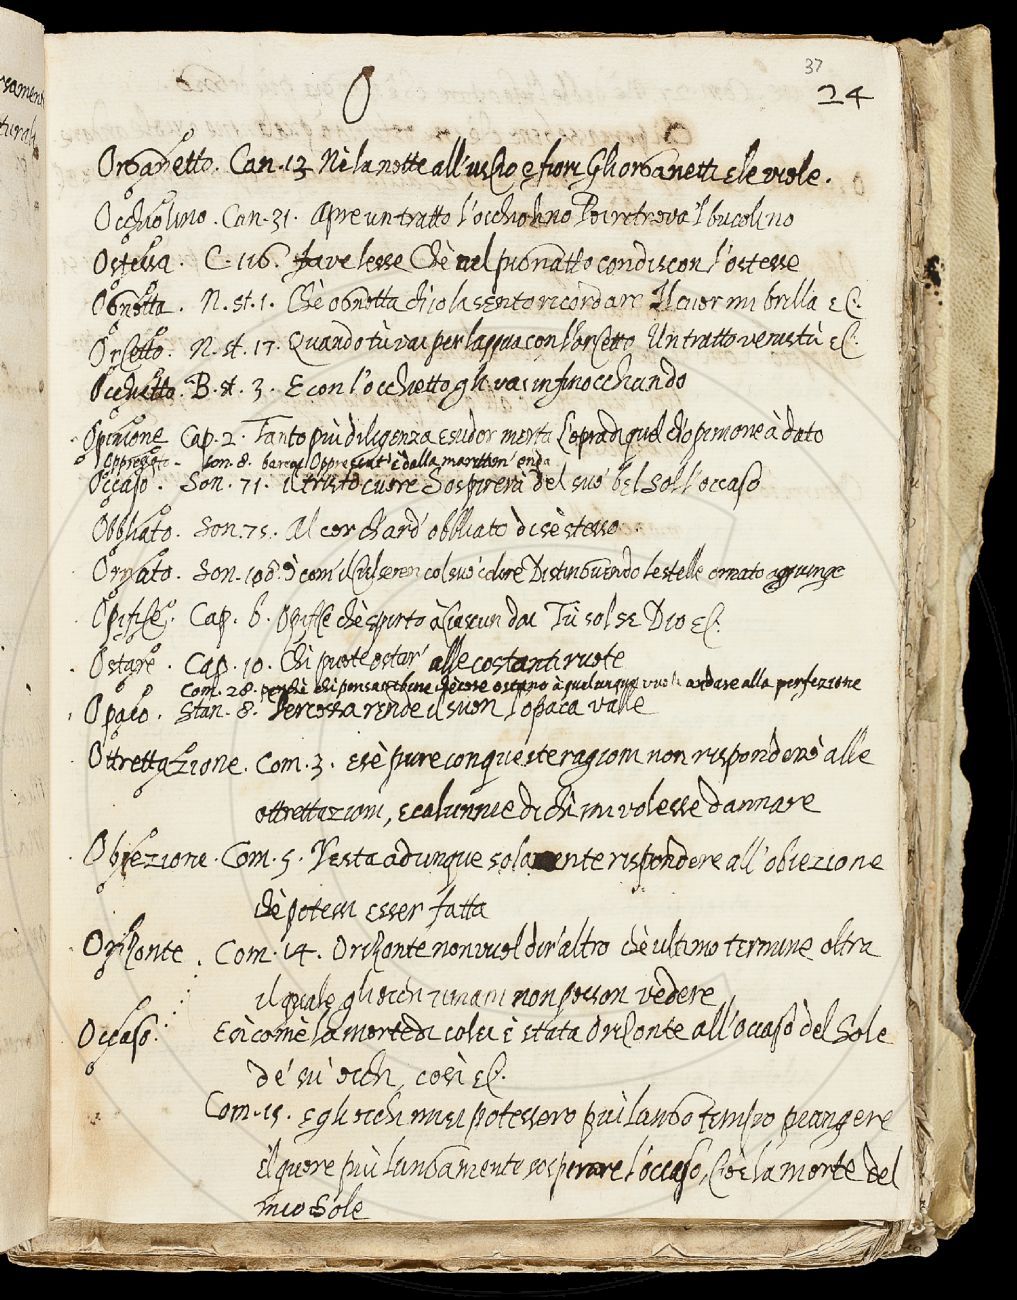 37
24
O
Organetto. Can. 13. Nè la notte all'uscio e fiori Gli organetti e le viole.
Occhiolino. Can. 31. Apre un tratto l'occhiolino Poi ritrova 'l bucolino
Ostessa. C. 116. Chè nel pignatto condiscon l'ostesse
Ognotta. N. st. 1. Chè ognotta ch'io la sento ricordare Il cuor mi brilla &c.
Orcetto. N. st. 17. Quando tù vai per l'acqua con l'orcetto Un tratto venistù &c.
Occhietto. B. st. 3. E con l'occhietto gli vai infinocchiando
Opinione Cap. 2. Tanto più diligenza e sudor merta L'opra di quel ch'opinione à dato
Oppresso. Son. 8. Oppressat' è dalla
Occaso. Son. 71. il tristo cuore Sospirerà del suo bel Sol l'occaso
Obbliato. Son. 75. Al cor ch'ard' obbliato di sè stesso
Ornato. Son. 108. ò com' il ciel seren col suo colore Distinguendo le stelle ornato aggiunge
Opifice. Cap. 6. Opifice chè spirto à ciascun dai Tù sol se Dio &c.
Ostare. Cap. 10. Chi puote ostar' alle costanti ruote
Com. 28. perchè chi pensa bene chè cose ostano à qualunque vuole andare alla perfezione
Opaco. Stan. 8. Percossa rende il suon l'opaca valle
Ottrettazione. Com. 3. e sè pure con queste ragioni non risponderò alle
ottrettazioni, e calunnie di chi mi volesse dannare
Obiezione. Com. 5. Resta adunque solamente rispondere all'obiezione
chè potessi esser fatta
Orizonte. Com. 14. Orizonte non vuol dir' altro chè ultimo termine oltra
il quale gli occhi umani non posson vedere
Occaso. E sì comè la morte di colei è stata Orizonte all'occaso del Sole
de' sui occhi, così &c.
Com. 15. e gli occhi miei potessero più lungo tempo piangere
il quore più lungamente sospirare l'occaso, cioè la morte del
mio Sole